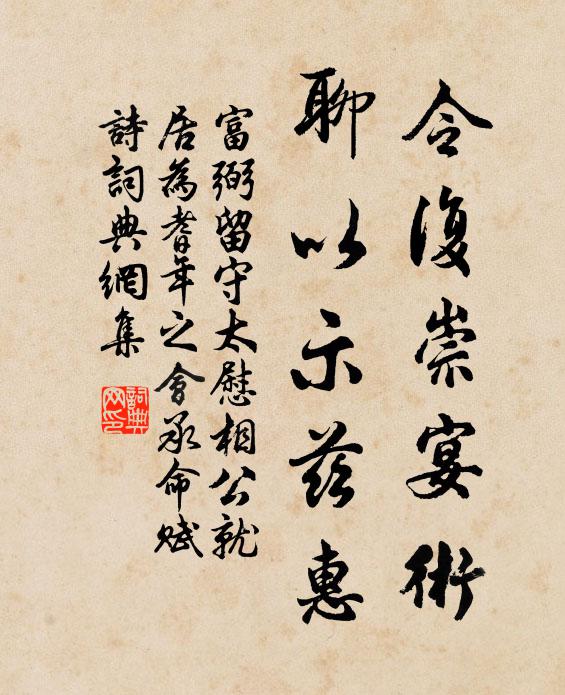 令復崇宴術
聊以示茲惠
富弼留守太慰相公就
居為耆年之會承命賦
詩詞典網集
詞典
网印